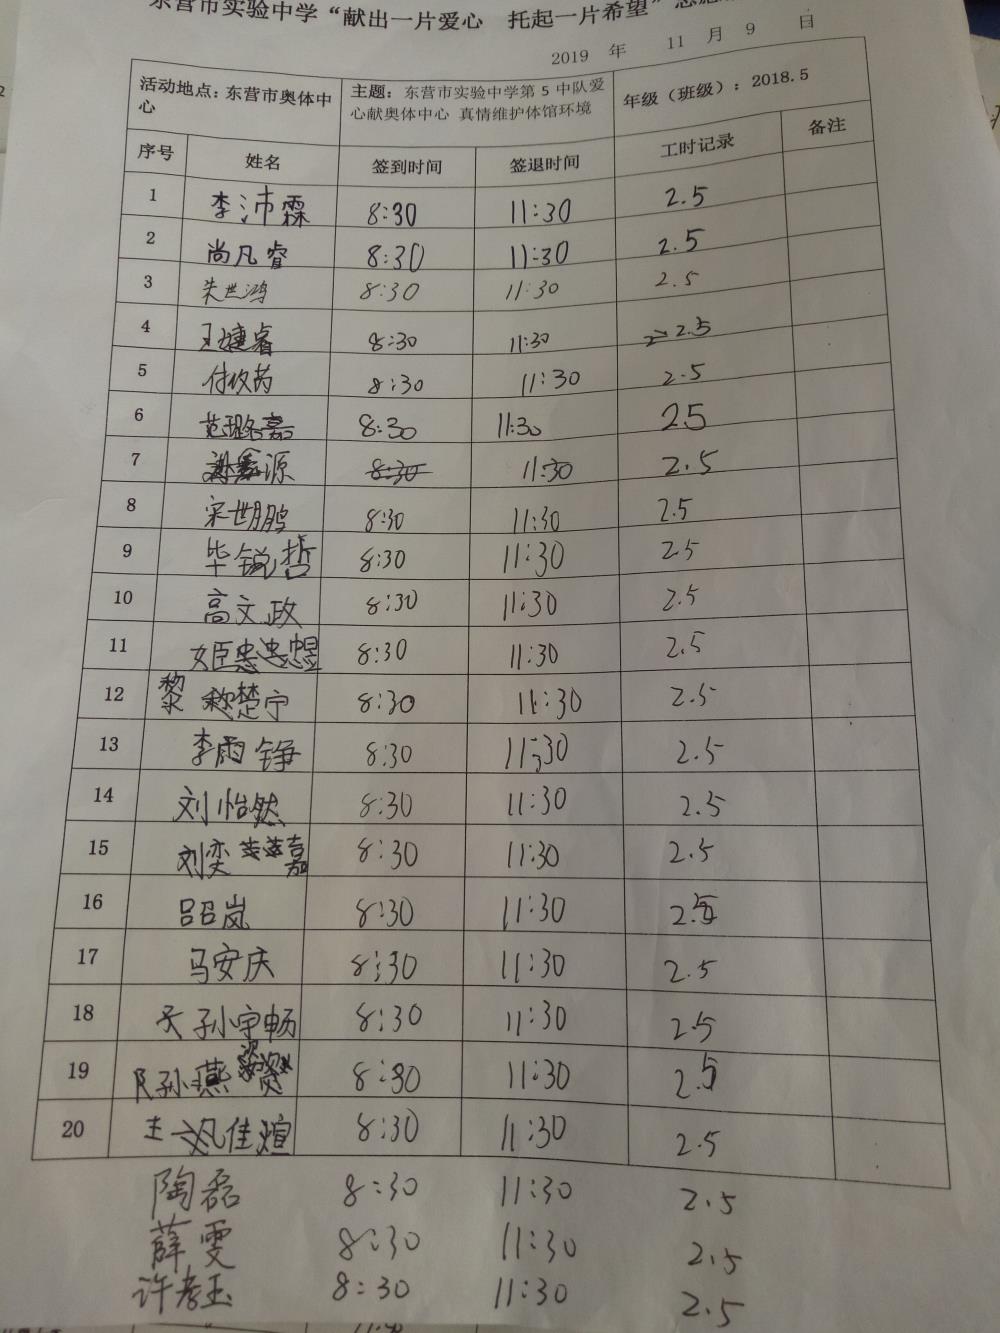 东营市实验中学“献出一片爱心 托起一片希望”
2019 年 11 月 9 日
活动地点：东营市奥体中心 主题：东营市实验中学第5中队爱心献奥体中心 真情维护体馆环境 年级（班级）：2018.5
序号 姓名 签到时间 签退时间 工时记录 备注
1 李沛霖 8:30 11:30 2.5
2 尚凡睿 8:30 11:30 2.5
3 朱世鸿 8:30 11:30 2.5
4 王婕睿 8:30 11:30 2.5
5 付攸芮 8:30 11:30 2.5
6 范璐嘉 8:30 11:30 25
7 源 8:30 11:30 2.5
8 宋世鹏 8:30 11:30 2.5
9 毕锐哲 8:30 11:30 2.5
10 高文政 8:30 11:30 2.5
11 姬忠煜 8:30 11:30 2.5
12 黎楚宁 8:30 11:30 2.5
13 李雨铮 8:30 11:30 2.5
14 刘怡然 8:30 11:30 2.5
15 刘奕嘉 8:30 11:30 2.5
16 吕召岚 8:30 11:30 2.5
17 马安庆 8:30 11:30 2.5
18 孙宇畅 8:30 11:30 2.5
19 孙燕 8:30 11:30 2.5
20 佳煊 8:30 11:30 2.5
陶磊 8:30 11:30 2.5
薛雯 8:30 11:30 2.5
许孝玉 8:30 11:30 2.5